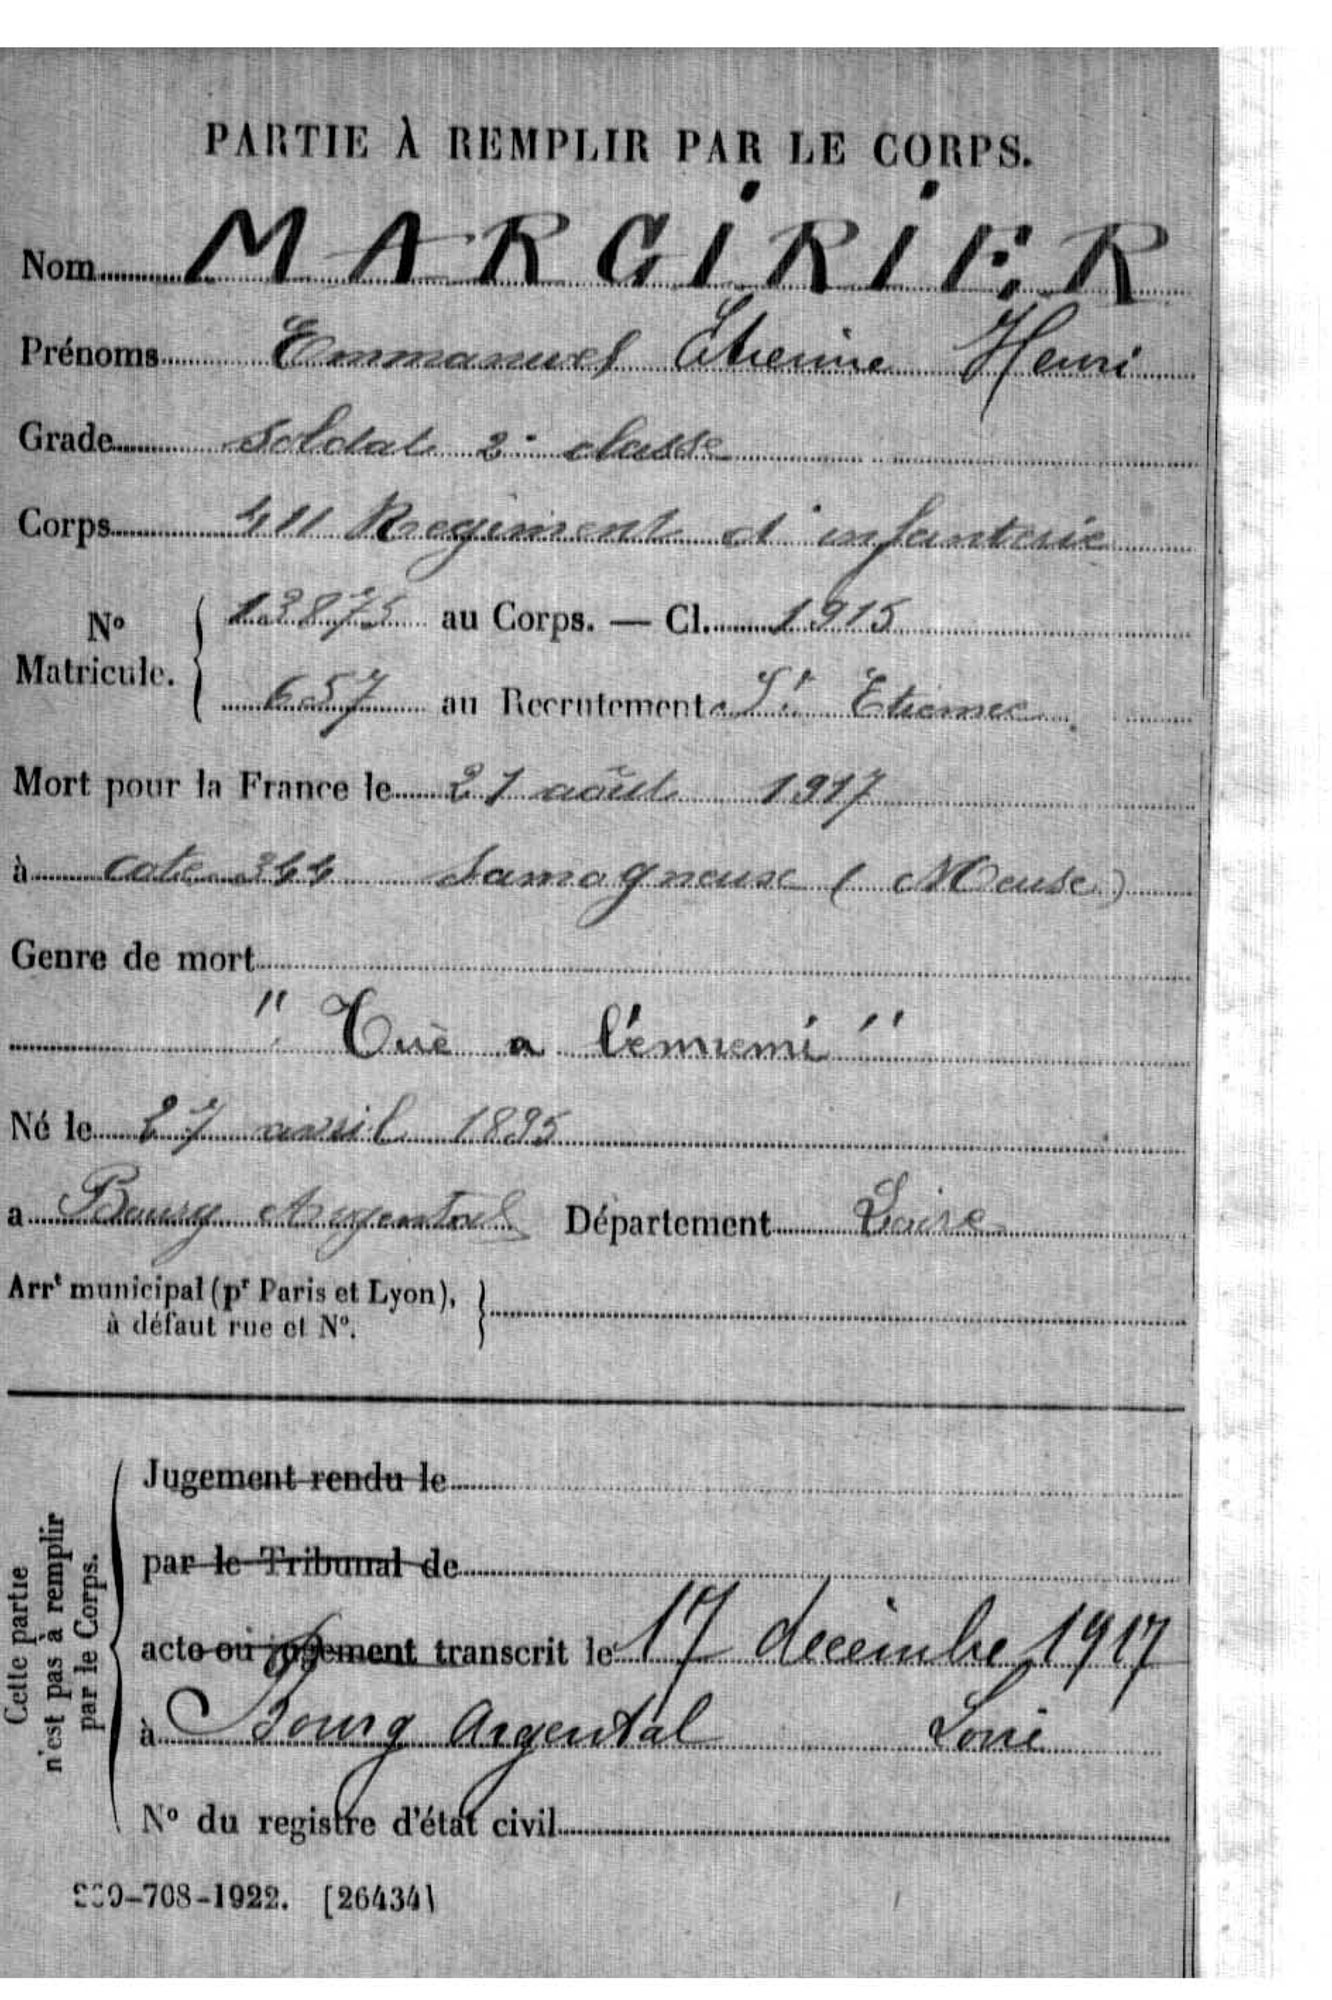 PARTIE À REMPLIR PAR LE CORPS.
Nom MARGIRIER
Prénoms Emmanuel Etienne Henri
Grade Soldat 2e classe
Corps 411 Regiment d'infanterie
No Matricule. 13875 au Corps. — Cl. 1915
657 au Recrutement St Etienne
Mort pour la France le 21 août 1917
à cote 344 Samogneux ( Meuse )
Genre de mort
" Tué a l'ennemi "
Né le 27 avril 1895
a Bourg Argental Département Loire
Arrt municipal (pr Paris et Lyon),
à défaut rue et No.
Cette partie
n'est pas à remplir
par le Corps.
Jugement rendu le
par le Tribunal de
acte ou jugement transcrit le 17 décembre 1917
à Bourg Argental Loire
No du registre d'état civil
-708-1922. [26434]